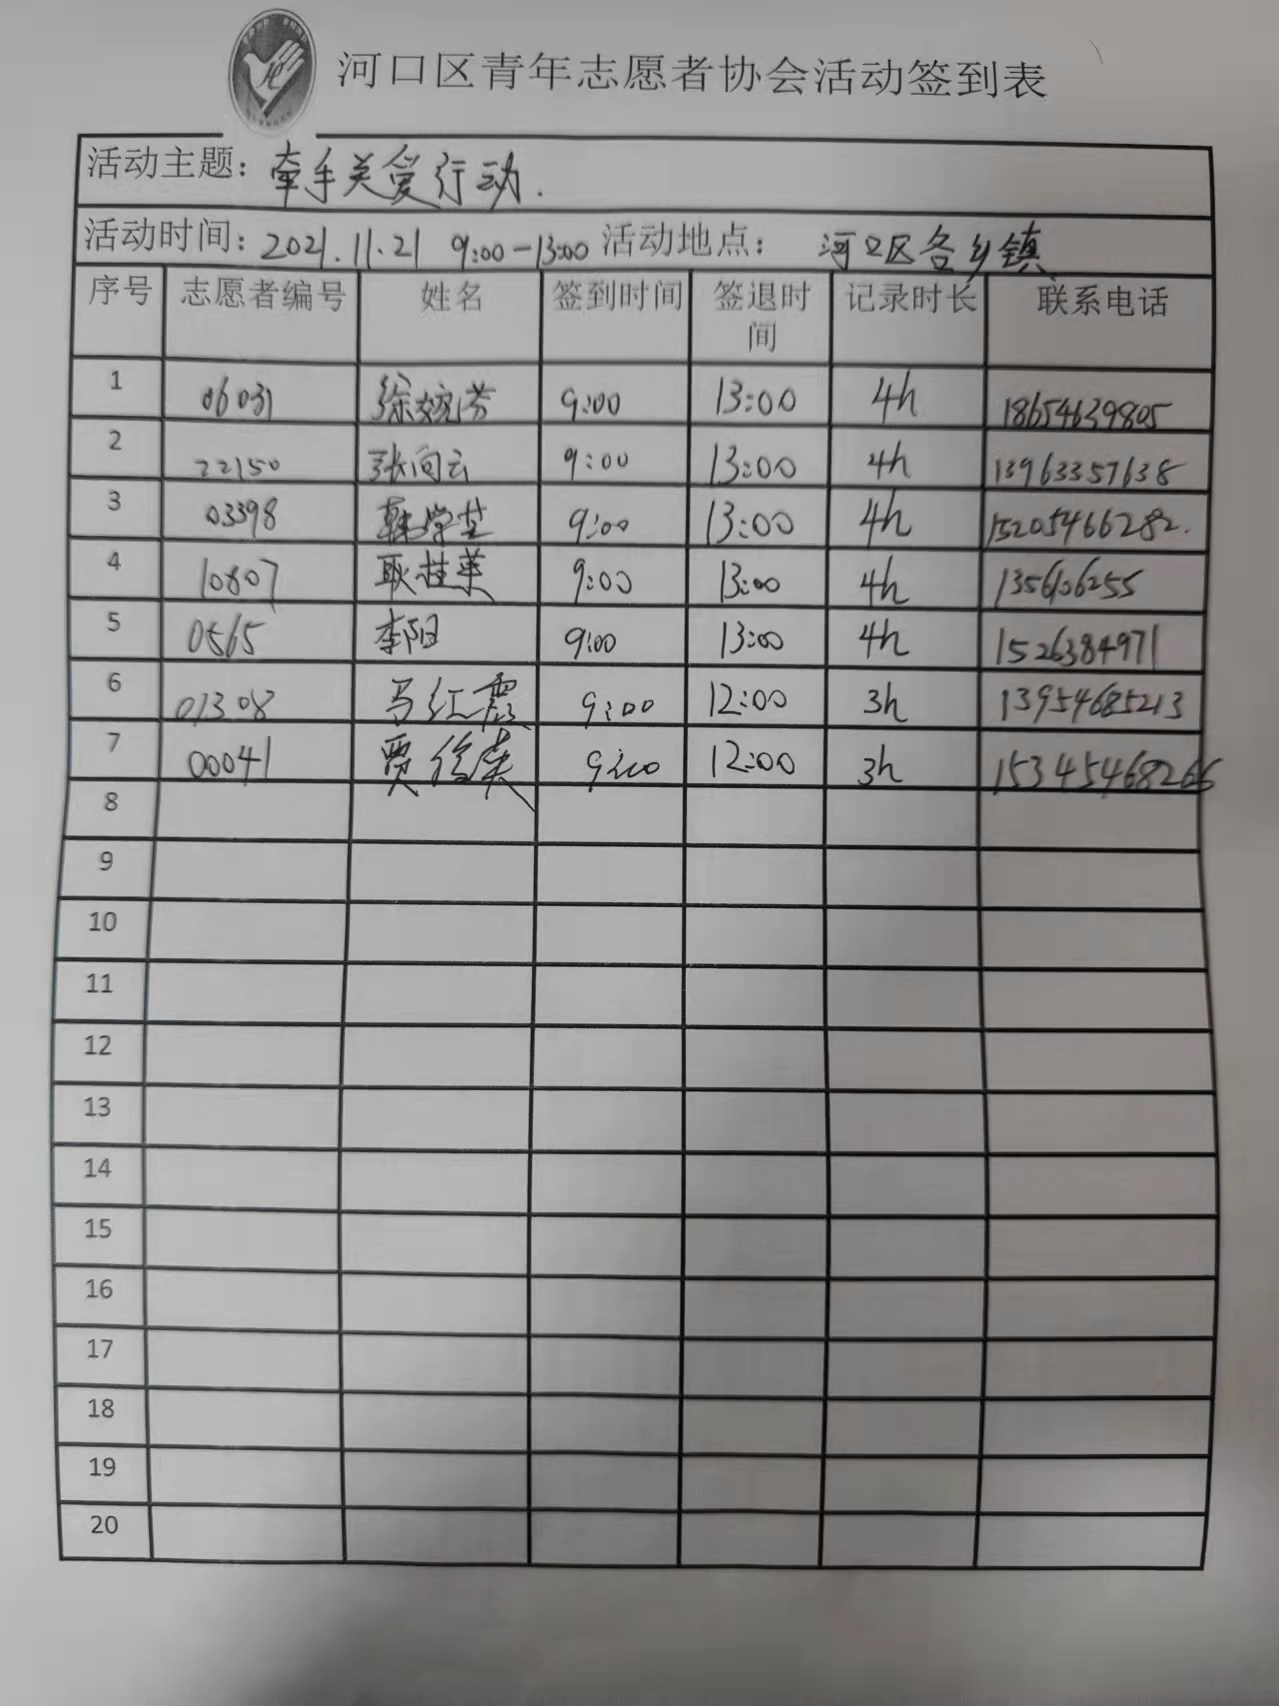 河口区青年志愿者协会活动签到表
活动主题：牵手关爱行动.
活动时间：2021.11.21 9:00-13:00 活动地点：河口区各乡镇
序号 志愿者编号 姓名 签到时间 签退时间 记录时长 联系电话
1 06031 徐婉芳 9:00 13:00 4h 18654639805
2 22150 张向云 9:00 13:00 4h 13963357638
3 03398 韩学芝 9:00 13:00 4h 15205466282.
4 10807 耿桂英 9:00 13:00 4h
5 0565 李阳 9:00 13:00 4h 1526384971
6 01308 马红霞 9:00 12:00 3h 13954685213
7 00041 贾 9:00 12:00 3h 15345468266
8
9
10
11
12
13
14
15
16
17
18
19
20